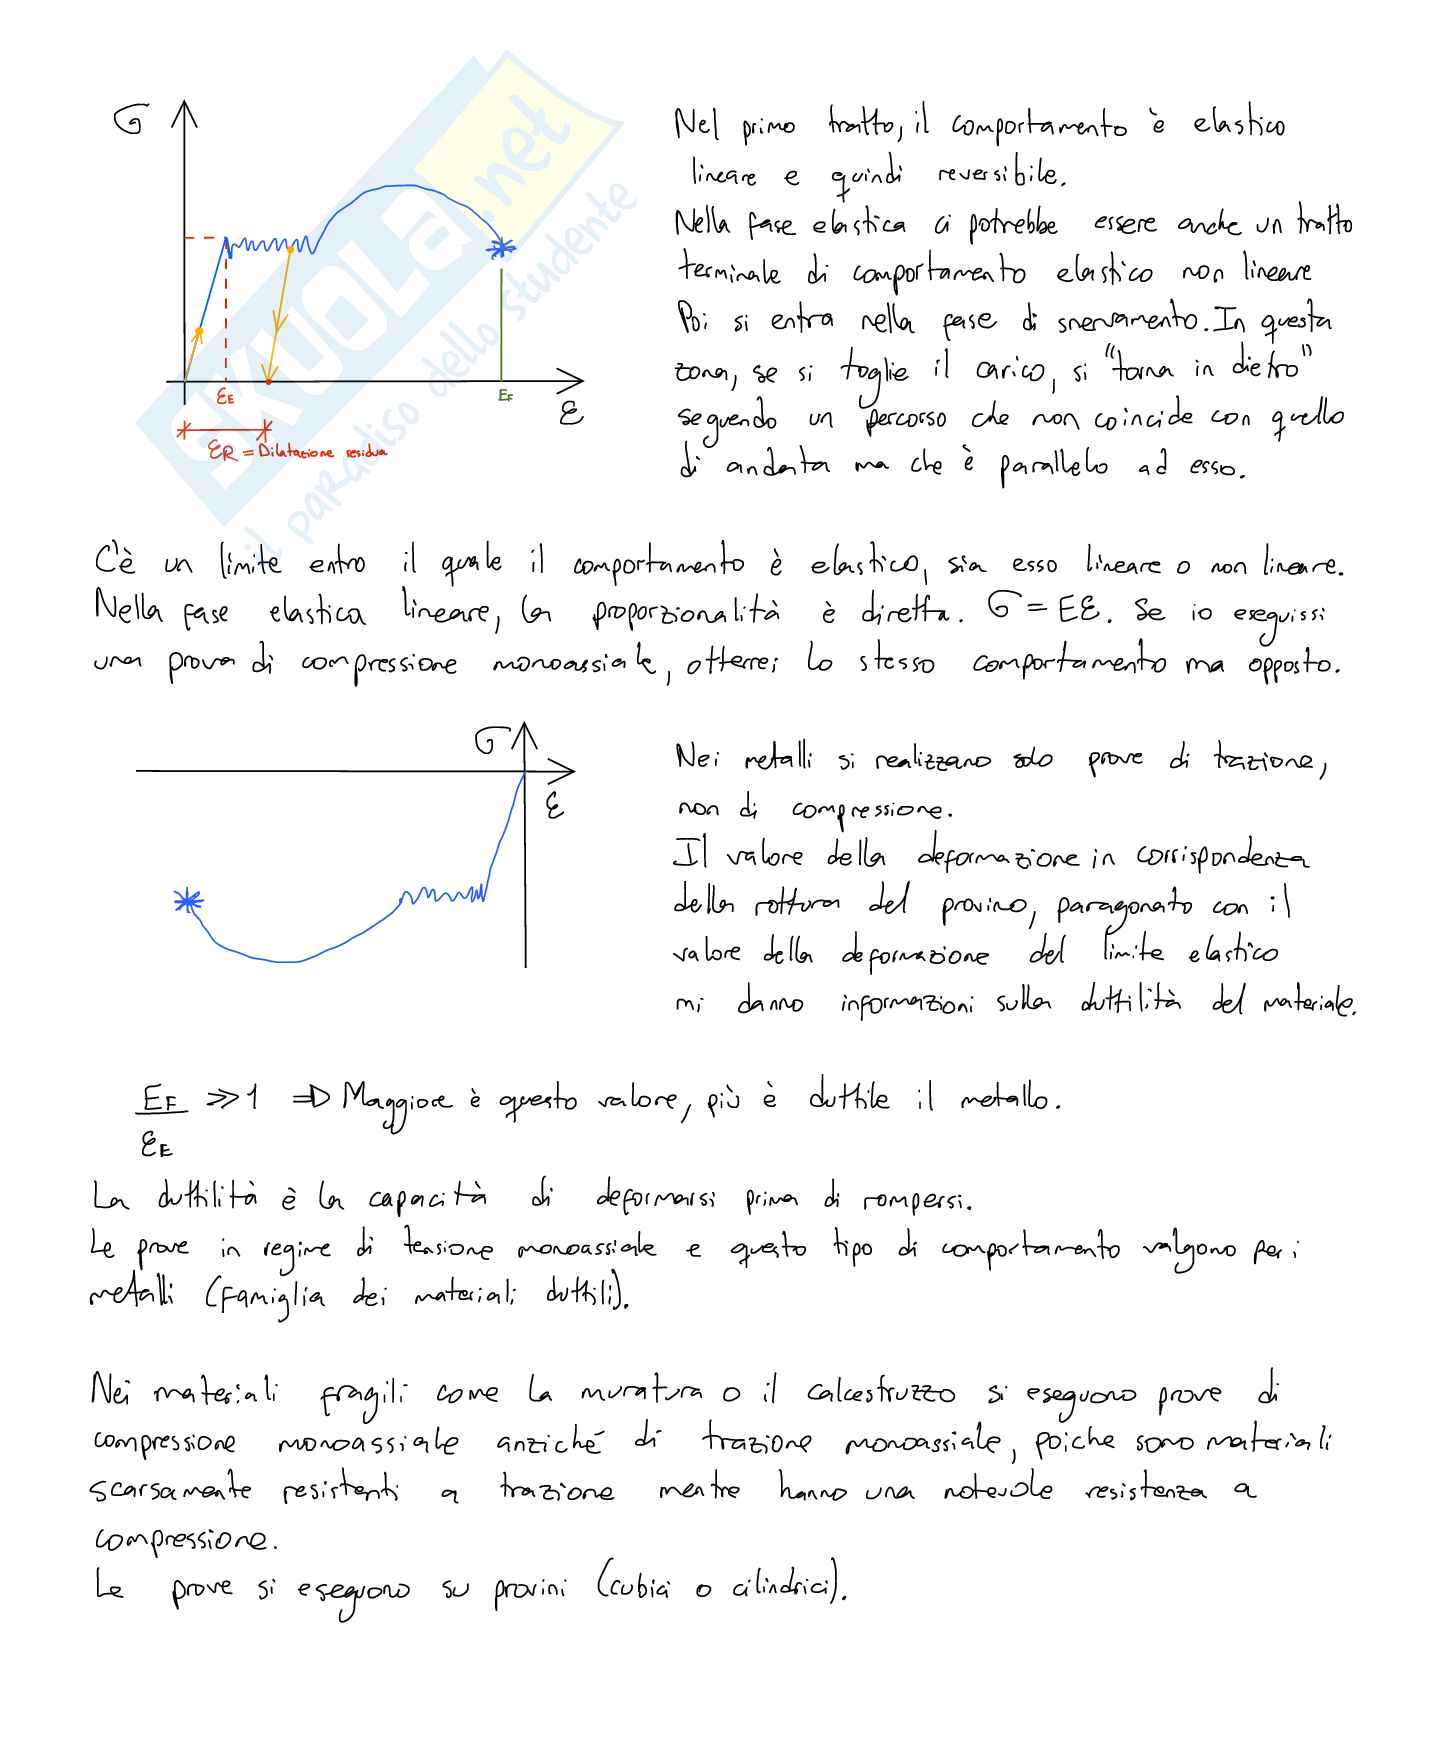 σ
ε
εE
EF
εR = Dilatazione residua
SKUOLA.net
il paradiso dello studente
Nel primo tratto, il comportamento è elastico
lineare e quindi reversibile.
Nella fase elastica ci potrebbe essere anche un tratto
terminale di comportamento elastico non lineare
Poi si entra nella fase di snervamento. In questa
zona, se si toglie il carico, si "torna in dietro"
seguendo un percorso che non coincide con quello
di andata ma che è parallelo ad esso.
C'è un limite entro il quale il comportamento è elastico, sia esso lineare o non lineare.
Nella fase elastica lineare, la proporzionalità è diretta. σ = Eε. Se io eseguissi
una prova di compressione monoassiale, otterrei lo stesso comportamento ma opposto.
σ
ε
Nei metalli si realizzano solo prove di trazione,
non di compressione.
Il valore della deformazione in corrispondenza
della rottura del provino, paragonato con il
valore della deformazione del limite elastico
mi danno informazioni sulla duttilità del materiale.
EF/εE ≫ 1 ⇒ Maggiore è questo valore, più è duttile il metallo.
La duttilità è la capacità di deformarsi prima di rompersi.
Le prove in regime di tensione monoassiale e questo tipo di comportamento valgono per i
metalli (famiglia dei materiali duttili).
Nei materiali fragili come la muratura o il calcestruzzo si eseguono prove di
compressione monoassiale anziché di trazione monoassiale, poiche sono materiali
scarsamente resistenti a trazione mentre hanno una notevole resistenza a
compressione.
Le prove si eseguono su provini (cubici o cilindrici).